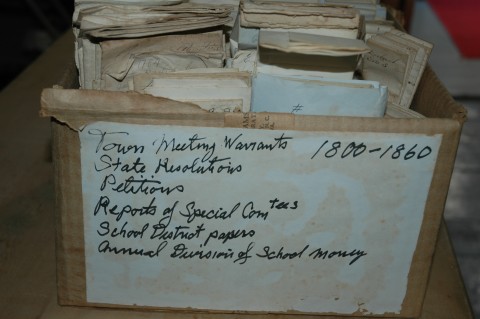 Town Meeting Warrants 1800-1860
State Resolutions
Petitions
Reports of Special Comtees
School District papers
Annual Division of School money